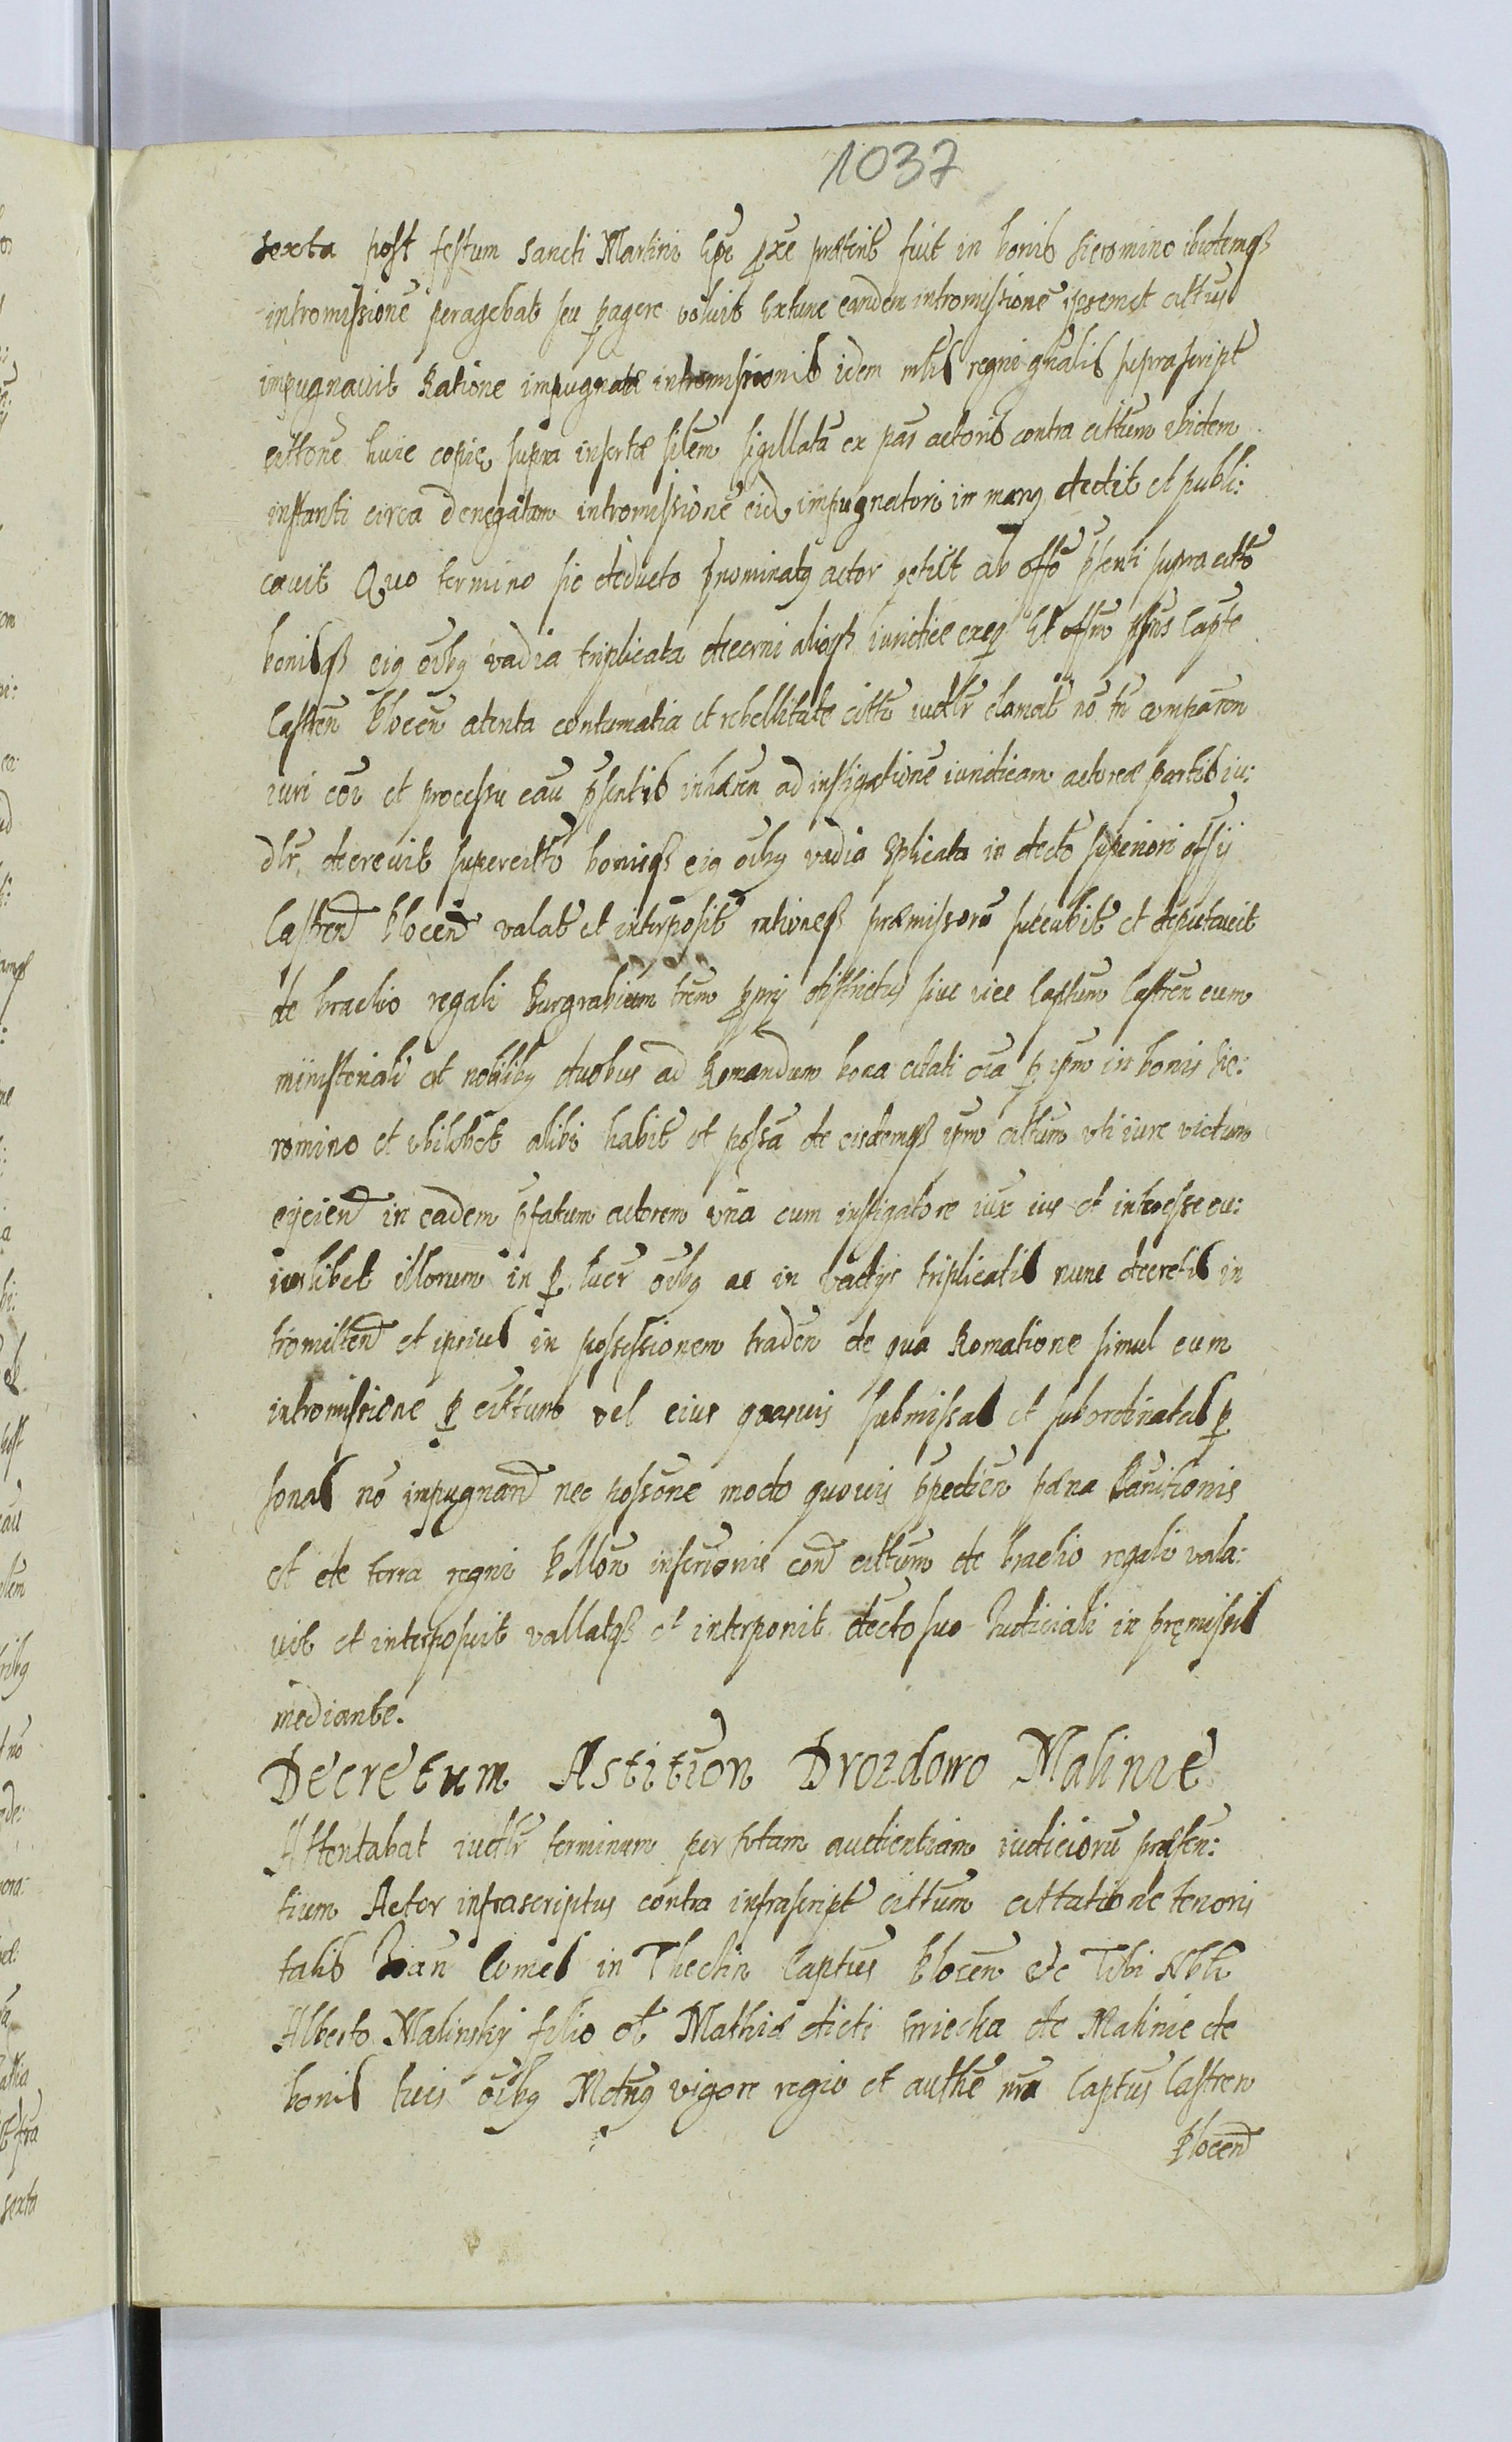 1037
sexta post festum sancti Martini epi pxe præterit fuit in bonis Sieromino ibidemqß
intromissionē peragebat seu pagere voluit Extunc eandem intromissionē ipsemet cittus
impugnavit Ratione impugnatæ intromissionis idem mlis regni gnalis suprascript
cittonē huic copię supra insertæ silem sigillatā ex pār actoris contra cittum ibidem
instanti circa denegatam intromissionē eid impugnatori in manq dedit et publi:
cavit Quo termino sic deducto pnominatq actor petiit ab offo psenti supra citto
bonisqß eiq oibq vadia triplicata decerni alioqß iuridice exeq Et offm pns Capte
Castren Plocen atenta contumatia et rebellitate citti iudlr clamat no tn comparen
iuri coi et processu cau psentis inhæren ad instigationē iuridicam actoreæ partis iu:
dlr. decrevit super citto bonisqß eiq oibq vadia triplicata in decto superiori offij
Castren Plocen valat et interposit rationeqß præmissorū succubit et deputavit
de brachio regali Burgrabium trem pprij districtus sive vice Captum Castren cum
ministeriali et nobilibq duobus ad Romandum bona citati oia p ipm in bonis Sie:
romino et ubilibet alibi habit et possa de eisdemqß ipm cittum uti iure victum
eijciend in eadem pfatum actorem una cum instigatore iux ius et interesse cu:
iuslibet illorum in p lucr oibq ac in vadijs triplicatis nunc decretis in
tromitten et ipsius in possessionem traden de qua Romatione simul cum
intromissione p cittum vel eius quasvis submissas et subordinatas p
sonas no impugnand nec possone modo quovis ppedien pæna bannitionis
et de terra regni Pollon inscrionis cond cittum de brachio regali vala:
vit et interposuit vallatqß et interponit decto suo Judiciali in pręmissis
mediante.
Decretum Astition Drozdowo Malinie
Attentabat iudlr terminum per totam audientiam iudiciorū præsen:
tium Actor infrascriptus contra infrascript cittum cittatione tenoris
talis Joan Comes in Thechin Captus Plocen etc Tibi Nbli
Alberto Malinsky filio ol Mathiæ dicti Griecka de Malinie de
bonis tuis oibq Motuq vigore regio et authe nra Captus Castren
Plocen